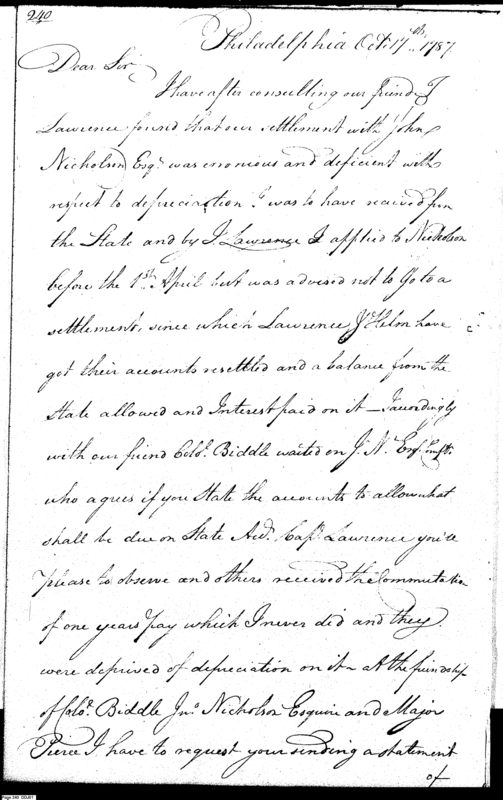 240
Philadelphia Octr. 17th. 1787
Dear Sir,
I have after consulting our friend J
Lawrence found that our settlement with John
Nicholson Esqr. was erronious and deficient with
respect to depreciation I was to have received from
the State and by J. Lawrence I applied to Nicholson
before the 1st. April but was advised not to Go to a
settlement, since which Lawrence & Helm have
got their accounts resettled and a balance from the
State allowed and Interest paid on it — I accordingly
with our friend Colo. Biddle waited on J. N. Esqr.
who agrees if you State the accounts to allow what
shall be due on State Acct. Capt. Lawrence you'll
please to observe and others received the Commutation
of one years Pay which I never did and they
were deprived of depreciation on it - at the friendship
of Colo. Biddle Jno. Nicholson Esquire and Major
Pierce I have to request your sending a statement
of
Page 240